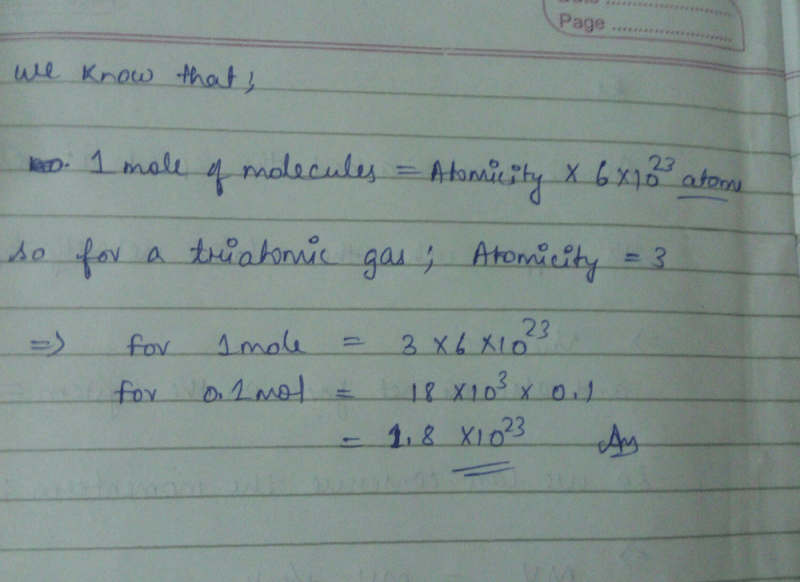 Page
we know that;
no. 1 mole of molecules = Atomicity × 6×10²³ atoms
so for a triatomic gas; Atomicity = 3
=> for 1mole = 3 ×6 ×10²³
for 0.1mol = 18 ×10³ × 0.1
= 1.8 ×10²³ Ans